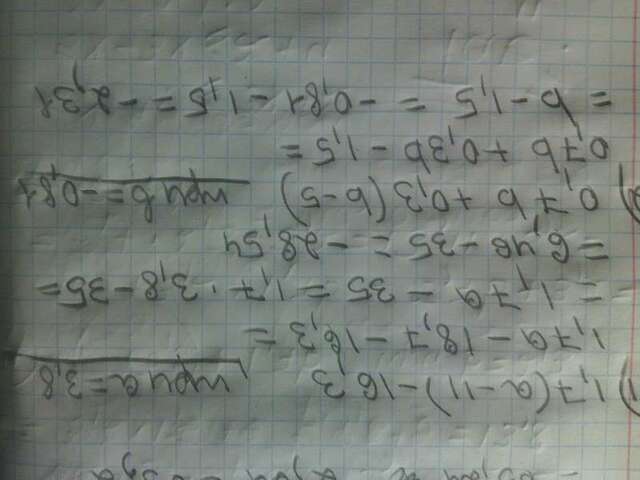 1) 1,7(a-11)-16,3 при a=3,8
1,7a-18,7-16,3=
=1,7a-35=1,7·3,8-35=
=6,46-35=-28,54
2) 0,7b+0,3(b-5) при b=-0,81
0,7b+0,3b-1,5=
=b-1,5=-0,81-1,5=-2,31